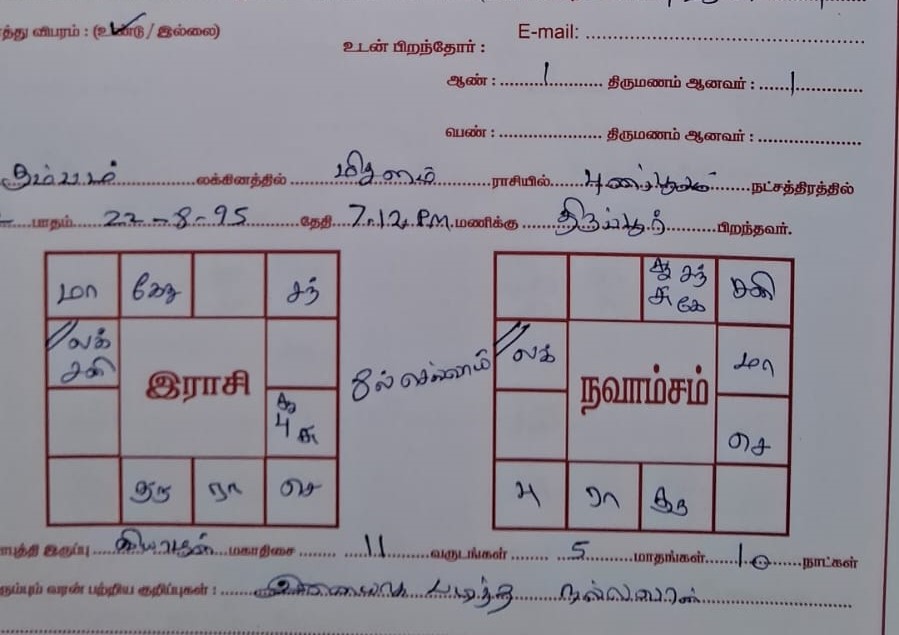 த்து விபரம் : (உண்டு / இல்லை)
E-mail:
உடன் பிறந்தோர் :
ஆண் : 1 திருமணம் ஆனவர் : 1
பெண் : திருமணம் ஆனவர் :
கும்பம் லக்கினத்தில் மிதுனம் ராசியில் புனர்பூசம் நட்சத்திரத்தில்
பாதம் 22-8-95 தேதி 7.12 P.M. மணிக்கு திருப்பூர் பிறந்தவர்.
மா கேது சந்
லக் சனி
இராசி
சூ பு சு
குரு ரா செ
8ல் செவ்வாய்
சூ சந் சு கே சனி
லக் மா
நவாம்சம்
செ
பு ரா குரு
புத்தி இருப்பு வியாழன் மகாதிசை 11 வருடங்கள் 5 மாதங்கள் 10 நாட்கள்
ரும்பும் வரன் பற்றிய குறிப்புகள் : படித்த நல்ல வரன்